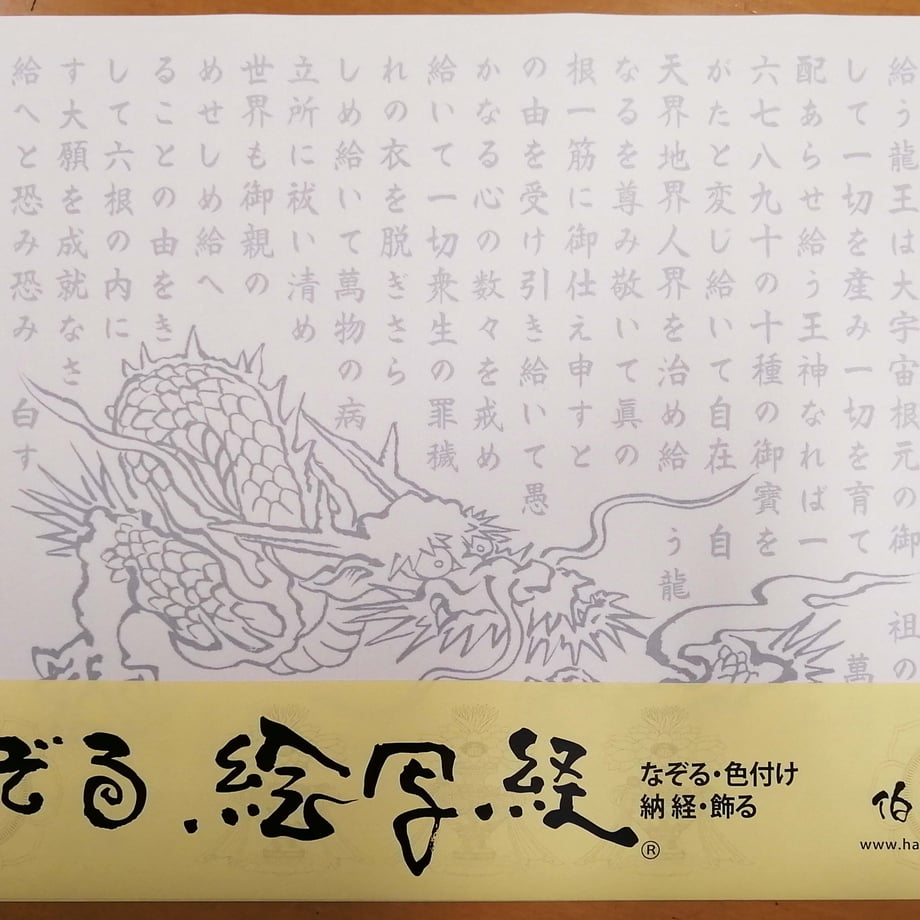 給う龍王は大宇宙根元の御 祖の
して一切を産み一切を育て 萬
配あらせ給う王神なれば一
六七八九十の十種の御寶を
がたと変じ給いて自在 自
天界地界人界を治め給 う龍
なるを尊み敬いて眞の
根一筋に御仕え申すと
の由を受け引き給いて愚
かなる心の数々を戒め
給いて一切衆生の罪穢
れの衣を脱ぎさら
しめ給いて萬物の病
立所に祓い清め
世界も御親の
めせしめ給へ
ることの由をき
して六根の内に
す大願を成就なさ
給へと恐み恐み 白す
ぞる 絵写経®
なぞる・色付け
納経・飾る
伯
www.ha